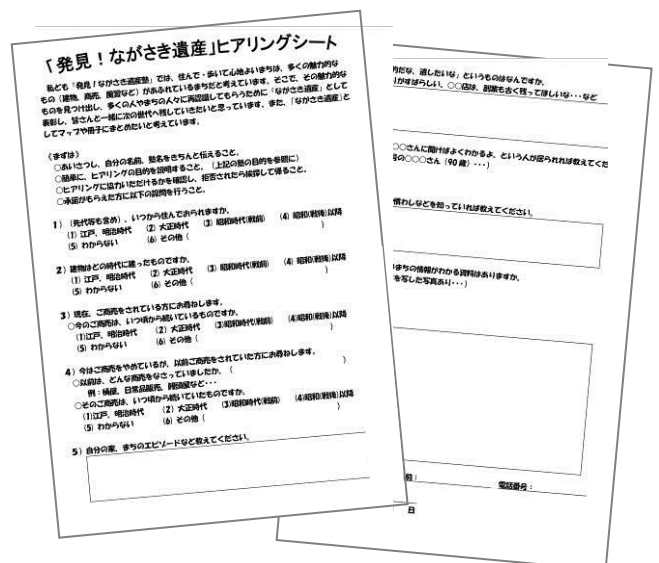 「発見！ながさき遺産」ヒアリングシート
私ども「発見！ながさき遺産塾」では、住んで・歩いて心地よいまちは、多くの魅力的な
もの（建物、商売、風習など）があふれているまちだと考えています。そこで、その魅力的な
ものを見つけ出し、多くの人やまちの人々に再認識してもらうために「ながさき遺産」として
表彰し、皆さんと一緒に次の世代へ残していきたいと思っています。また、「ながさき遺産」と
してマップや冊子にまとめたいと考えています。
《まずは》
○あいさつし、自分の名前、塾名をきちんと伝えること。
○簡単に、ヒアリングの目的を説明すること。（上記の塾の目的を参照に）
○ヒアリングに協力いただけるかを確認し、拒否されたら挨拶して帰ること。
○承諾がもらえた方に以下の設問を行うこと。
1）（先代等も含め）、いつから住んでおられますか。
(1) 江戸、明治時代 (2) 大正時代 (3) 昭和時代(戦前) (4) 昭和(戦後)以降
(5) わからない (6) その他（ ）
2）建物はどの時代に建ったものですか。
(1) 江戸、明治時代 (2) 大正時代 (3) 昭和時代(戦前) (4) 昭和(戦後)以降
(5) わからない (6) その他（ ）
3）現在、ご商売をされている方にお尋ねします。
○今のご商売は、いつ頃から続いているものですか。
(1)江戸、明治時代 (2) 大正時代 (3)昭和時代(戦前) (4)昭和(戦後)以降
(5) わからない (6) その他（ ）
4）今はご商売をやめているが、以前ご商売をされていた方にお尋ねします。
○以前は、どんな商売をなさっていましたか。（ ）
例：桶屋、日常品販売、饅頭屋など・・・
○そのご商売は、いつ頃から続いていたものですか。
(1)江戸、明治時代 (2) 大正時代 (3)昭和時代(戦前) (4)昭和(戦後)以降
(5) わからない (6) その他（ ）
5）自分の家、まちのエピソードなど教えてください。
的だな、遺したいな」というものはなんですか。
がすばらしい。○○店は、創業も古く残ってほしいな・・・など
○○さんに聞けばよくわかるよ、という人が居られれば教えてくだ
号の○○○さん（90歳）・・・）
慣わしなどを知っていれば教えてください。
まちの情報がわかる資料はありますか。
を写した写真あり・・・）
前： 電話番号：
日